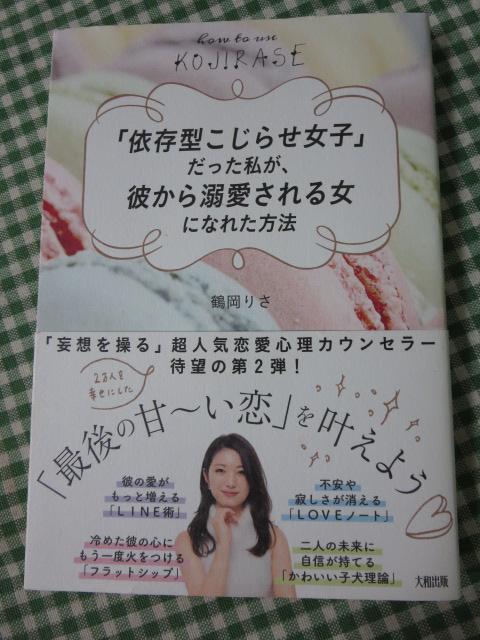 how to use
KOJIRASE
「依存型こじらせ女子」
だった私が、
彼から溺愛される女
になれた方法
鶴岡りさ
「妄想を操る」超人気恋愛心理カウンセラー
待望の第2弾!
2万人を
幸せにした
「最後の甘〜い恋」を叶えよう
彼の愛が
もっと増える
「LINE術」
不安や
寂しさが消える
「LOVEノート」
冷めた彼の心に
もう一度火をつける
「フラットシップ」
二人の未来に
自信が持てる
「かわいい子犬理論」
大和出版